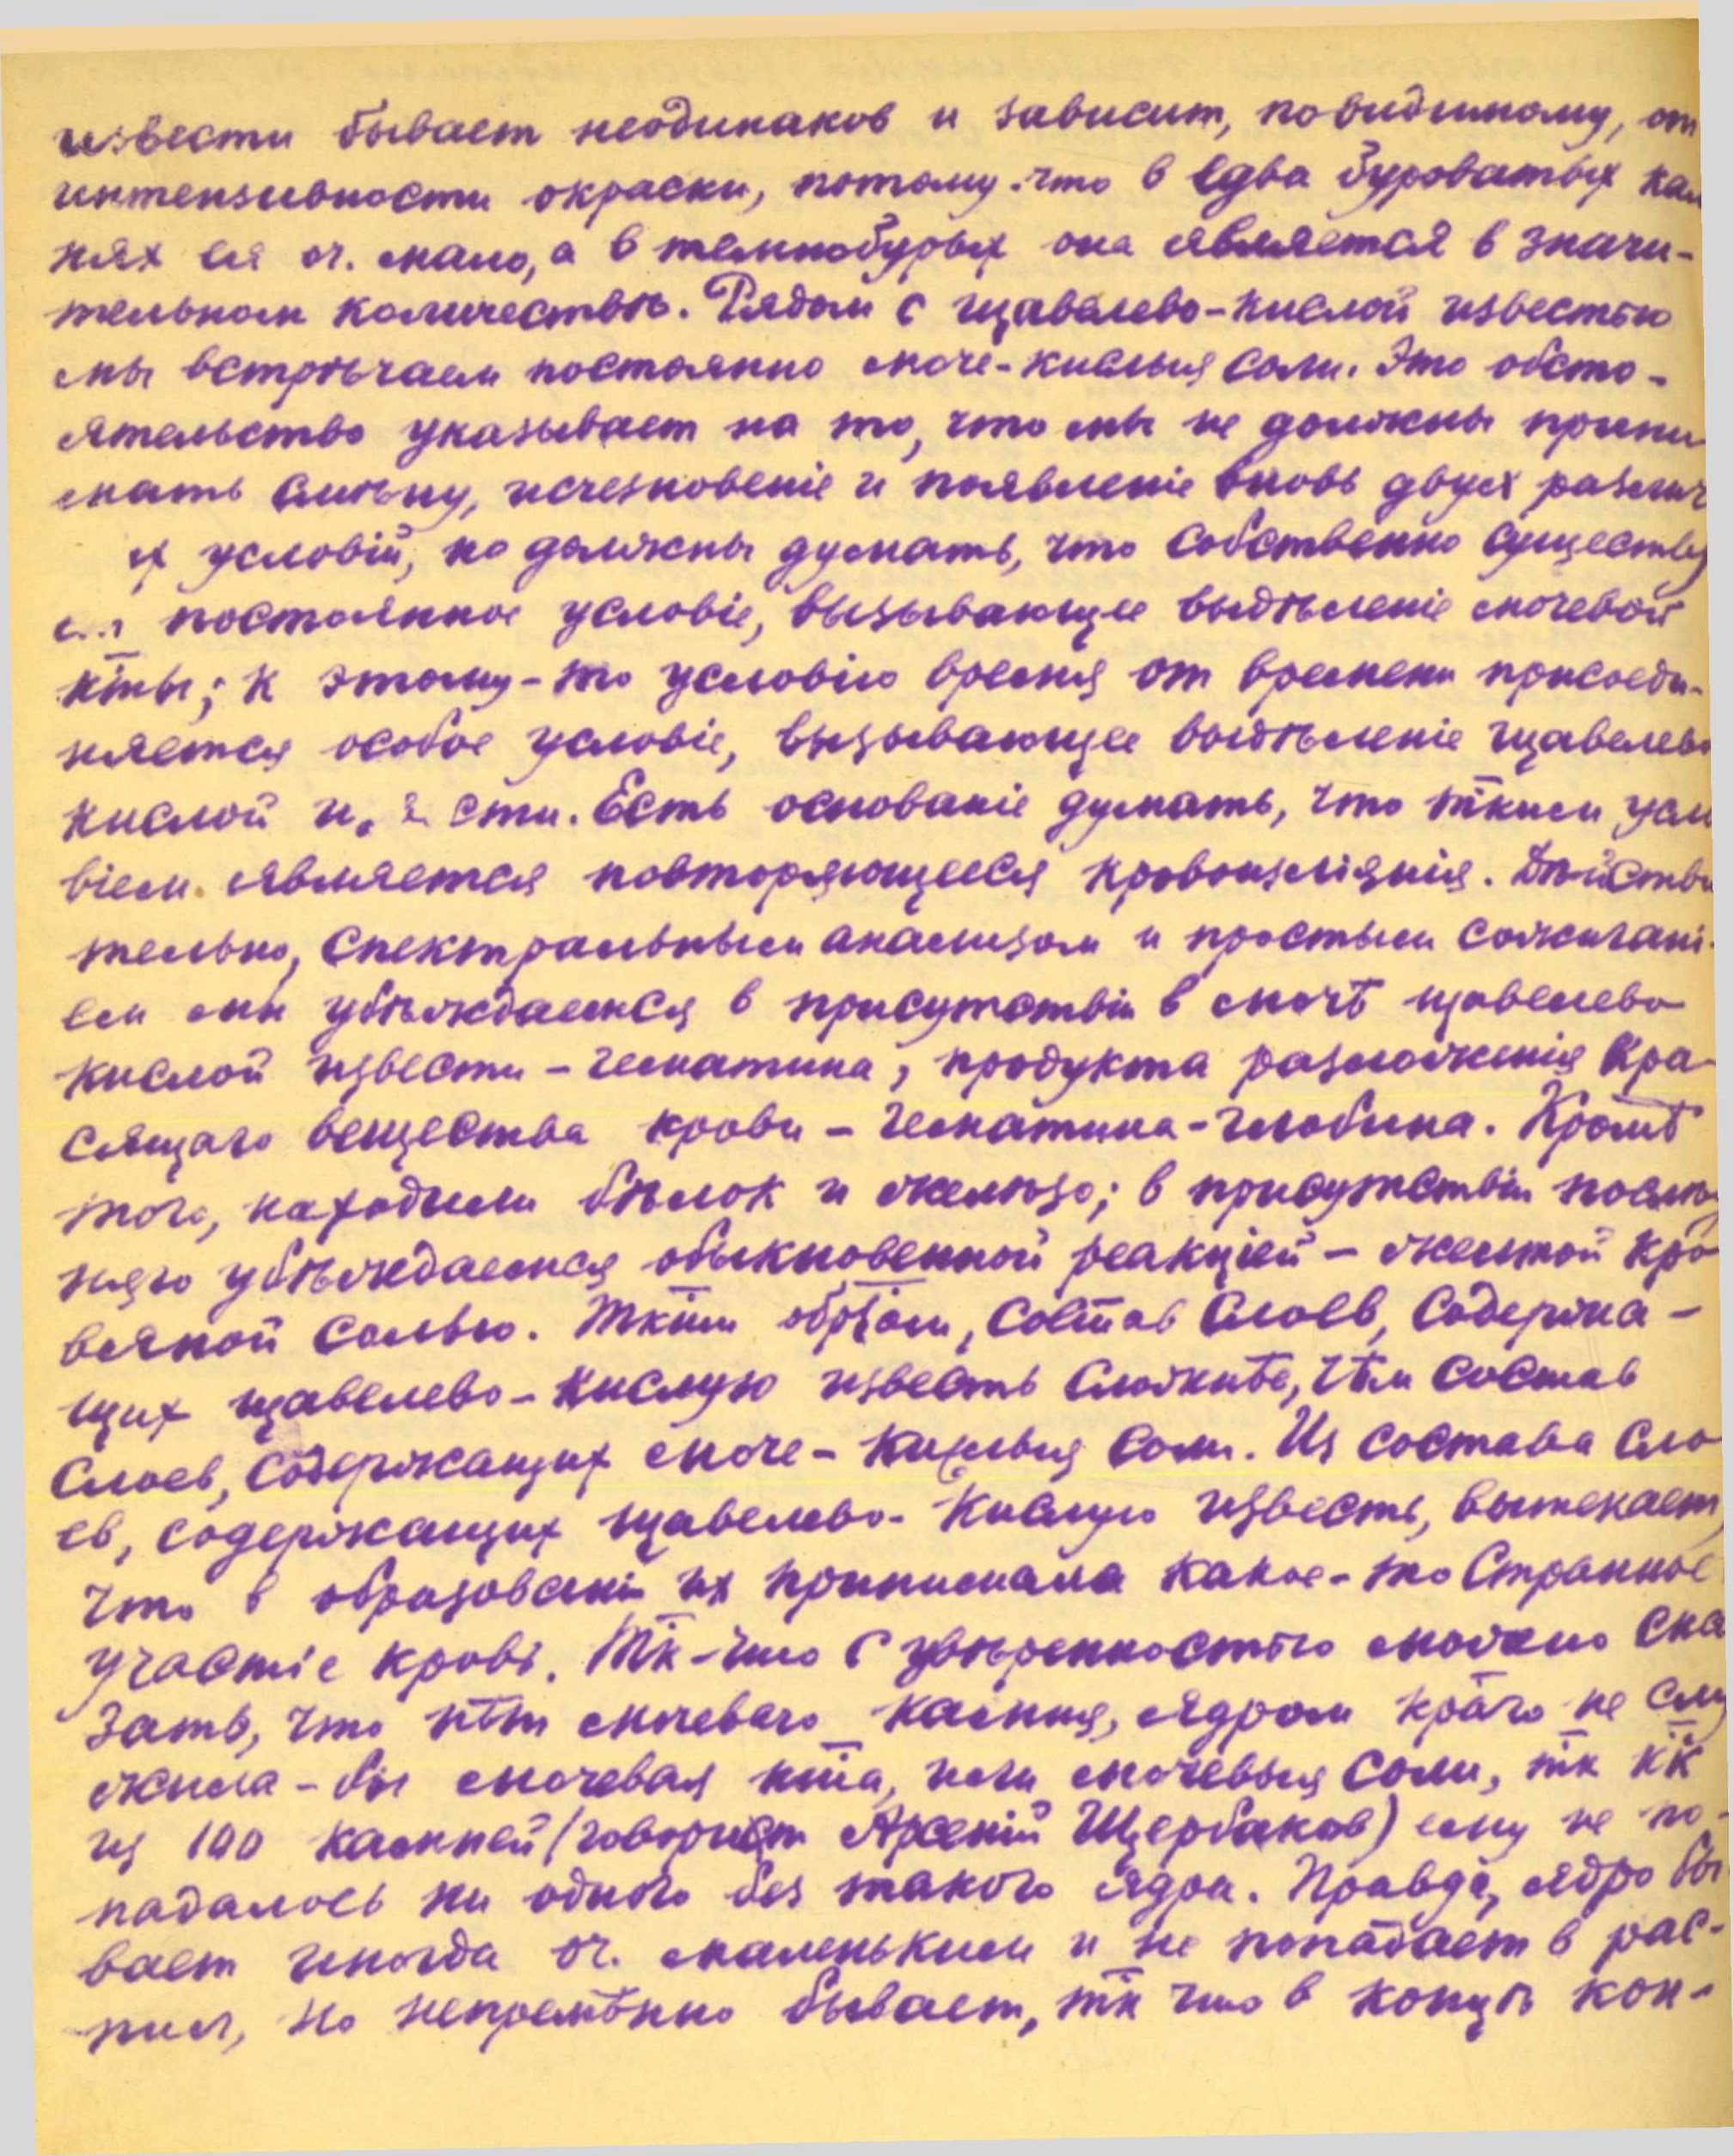 извести бывает неодинаков и зависит, повидимому, от
интенсивности окраски, потому что в едва буроватых кам
нях ея оч. мало, а в темнобурых она является в значи-
тельном количествѣ. Рядом с щавелево-кислой известью
мы встрѣчаем постоянно моче-кислыя соли. Это обсто-
ятельство указывает на то, что мы не должны прини
мать смѣну, исчезновеніе и появленіе вновь двух различ
х условій, но должны думать, что собственно существу
постоянное условіе, вызывающее выдѣленіе мочевой
кты; к этому-то условію время от времени присоеди-
няется особое условіе, вызывающее выдѣленіе щавелево
кислой и сти. Есть основаніе думать, что тким усло
віем является повторяющееся кровоизліянія. Дѣйстви
тельно, спектральным анализом и простым сожигані-
ем мы убѣждаемся в присутствіи в мочѣ щавелево
кислой извести - гематина, продукта разложенія кра-
сящаго вещества крови - гематина-глобина. Кромѣ
того, находили бѣлок и желѣзо; в присутствіи послѣд
няго убѣждаемся обыкновенной реакціей - желтой кро
вяной солью. Тким обрзом, состав слоев, содержа-
щих щавелево-кислую известь сложнѣе, чѣм состав
слоев, содержащих моче-кислыя соли. Из состава сло
ев, содержащих щавелево-кислую известь, вытекает,
что в образовани их принимала какое-то странное
участіе кровь. Тк-что с увѣренностью можно ска
зать, что нѣт мочеваго камня, ядром краго не слу
жила-бы мочевая кта, или мочевыя соли, тк кк
из 100 камней (говорит Арсеній Щербаков) ему не по-
падалось ни одного без такого ядра. Правда, ядро бы
вает иногда оч. маленьким и не попадает в рас-
пил, но непремѣнно бывает, тк что в концѣ кон-